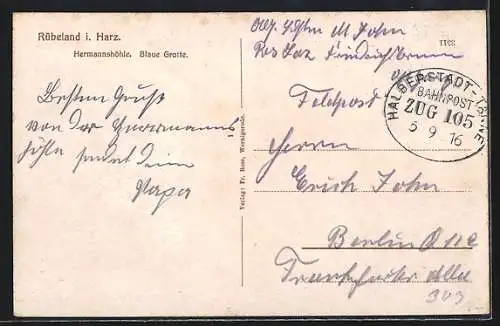 Rübeland i. Harz.
Hermannshöhle. Blaue Grotte.
Besten Gruß
von der Hermanns
höhle sendet Dein
Papa
Verlag: Fr. Rose, Wernigerode.
M John
Friedrichsbrunn
Feldpost
HALBERSTADT-TANNE
BAHNPOST
ZUG 105
5 9 16
Herrn
Erich John
Berlin O 112
Frankfurter Allee
303